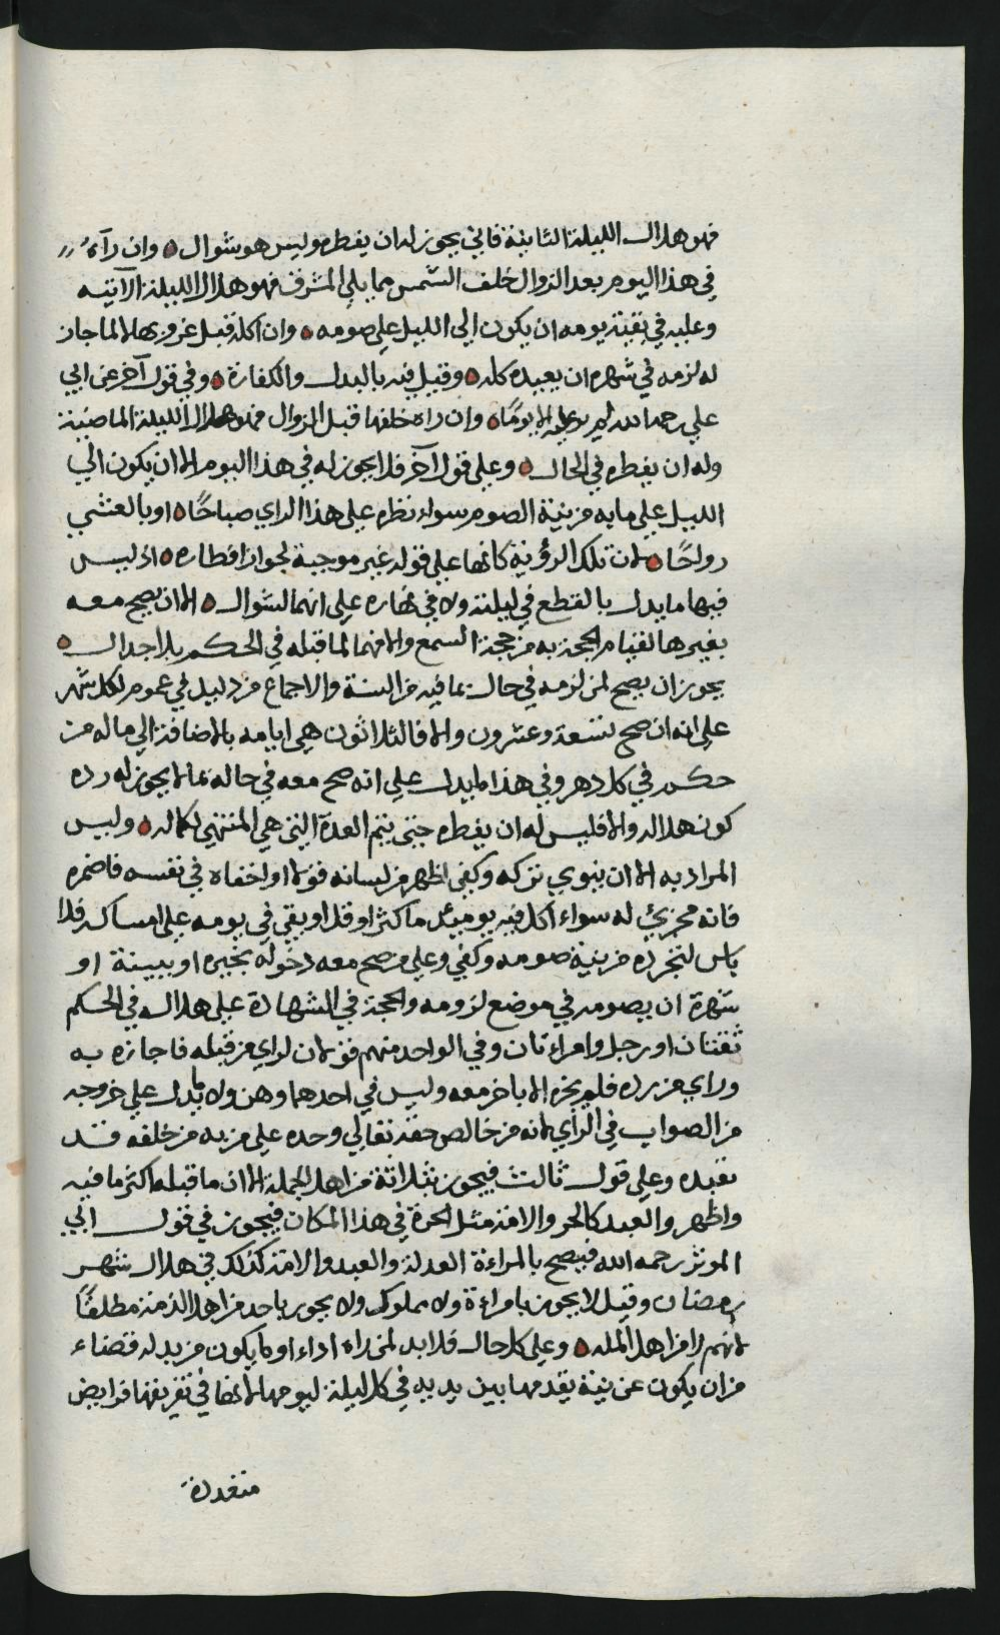 فهو هلال الليلة الثانية فاني يجوز له ان يفطره وليس هو شوال وان رآه
في هذا اليوم بعد الزوال خلف الشمس مما يلي المشرق فهو هلال الليلة الآتيه
وعليه في بقية يومه ان يكون الى الليل على صومه وان اكله قبل غروبها لا لما جاز
له لزمه في شهره ان يعيده كله وقيل فيه بالبدل والكفارة وفي قول آخر عن ابي
علي رحمه الله لم يوجبه الا يومًا وان راه خلفها قبل الزوال فهو هلال الليلة الماضية
وله ان يفطره في الحال وعلى قول آخر فلا يجوز له في هذا اليوم الا ان يكون الى
الليل على ما به من نية الصوم سواء نظره على هذا الراي صباحًا او بالعشي
رواحًا لان تلك الرؤية كانها على قوله غير موجبة لجواز افطاره اذ ليس
فيها ما يدل بالقطع في ليلته ولا في نهاره على انهما لشوال الا ان يصح معه
بغيرها لقيام الحجة به من حجة السمع والا فهما لما قبله في الحكم بلا جدال
يجوز ان يصح لمن لزمه في حال بما فيه من السنة والاجماع من دليل في عموم لكل شهر
على انه ان صح تسعة وعشرون والا فالثلاثون هي ايامه بالاضافة الى ما له من
حكم في كل دهر وفي هذا ما يدل على انه صح معه في حاله بما لا يجوز له رده
كون هلاله والا فليس له ان يفطره حتى يتم العدة التي هي المنتهى لكماله وليس
المراد به الا ان ينوي تركه وكفى اظهر من لسانه قولا او اخفاه في نفسه فاضمره
فانه مجزئ له سواء اكل فيه يوميئذ ما كثر او قل او بقي في يومه على امساكه فلا
باس لتجرده من نية صومه وكفى وعلى من صح معه دخوله بخبره او ببينة او
شهرة ان يصومه في موضع لزومه والحجة في الشهادة على هلاله في الحكم
ثقتان او رجل وامراءتان وفي الواحد منهم قولان لراي من قبله فاجازه به
وراي من رده فلم يجزه الا باخر معه وليس في احدهما وهن ولا ما يدل على خروجه
من الصواب في الراي لانه من خالص حقه تعالى وحده على من به من خلقه قد
تعبده وعلى قول ثالث فيجوز بثلاثة من اهل الجملة الا ان ما قبله اكثر ما فيه
واظهر والعبد كالحر والامة مثل الحرة في هذا المكان فيجوز في قول ابي
المؤثر رحمه الله فيصح بالمراءة العدلة والعبد والامة كذلك في هلال شهر
رمضان وقيل لا يجوز بامراءة ولا مملوك ولا يجوز باحد من اهل الذمة مطلقًا
لانهم لا من اهل المله وعلى كل حال فلا بد لمن راه اداء او ما يكون من بدله قضاء
من ان يكون عن نية يقدمها بين يديه في كل ليلة ليومها لانها في تفريقها فرايض
متعددة